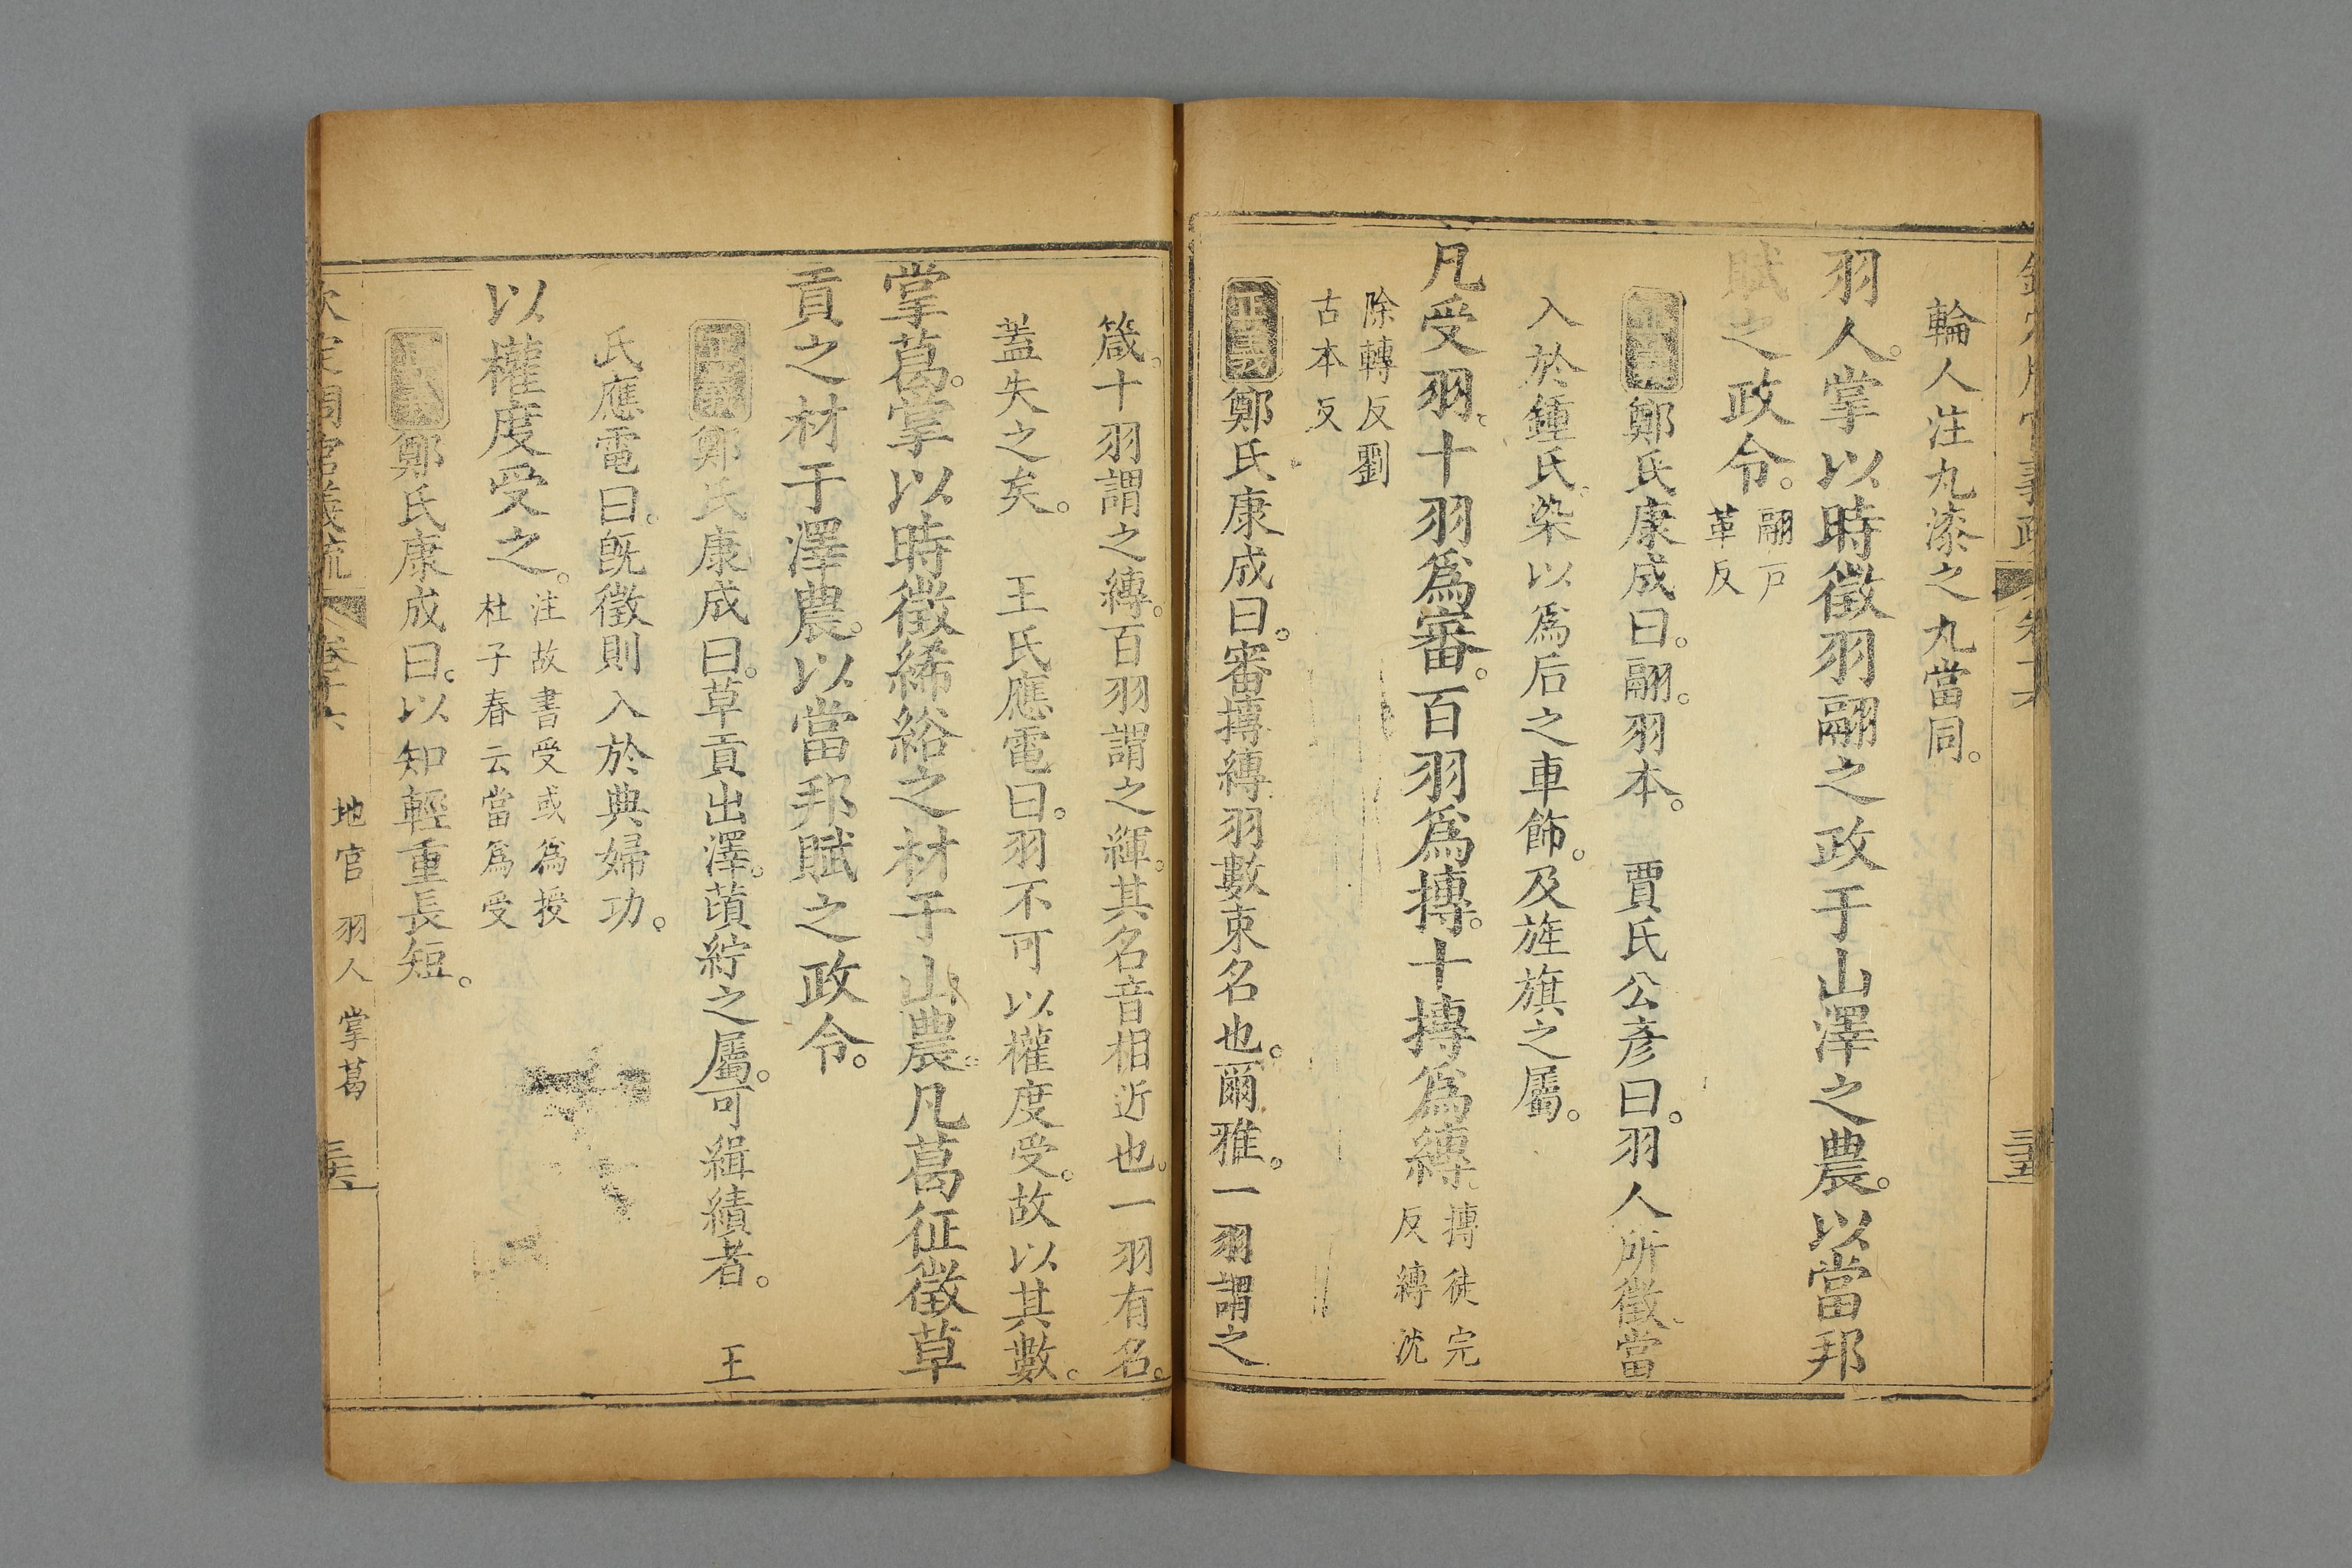 輪人注丸漆之丸當同。
羽人。掌以時徵羽翮之政于山澤之農。以當邦
賦之政令。翮戸革反
正義鄭氏康成曰。翮。羽本。 賈氏公彥曰。羽人所徵。當
入於鍾氏。染以爲后之車飾。及旌旗之屬。
凡受羽。十羽爲審。百羽爲摶。十摶爲縳。摶徒完反縳沈
除轉反劉古本反
正義鄭氏康成曰。審摶縳羽數束名也。爾雅。一羽謂之
箴。十羽謂之縳。百羽謂之緷。其名音相近也。一羽有名。
蓋失之矣。 王氏應電曰。羽不可以權度受。故以其數。
掌葛。掌以時徵絺綌之材于山農。凡葛征徵草
貢之材于澤農。以當邦賦之政令。
正義鄭氏康成曰。草貢出澤。蒷紵之屬。可緝績者。 王
氏應電曰。旣徵則入於典婦功。
以權度受之。注故書受或爲授杜子春云當爲受
正義鄭氏康成曰。以知輕重長短。
欽定周官義疏 卷十六 地官 羽人 掌葛 三六